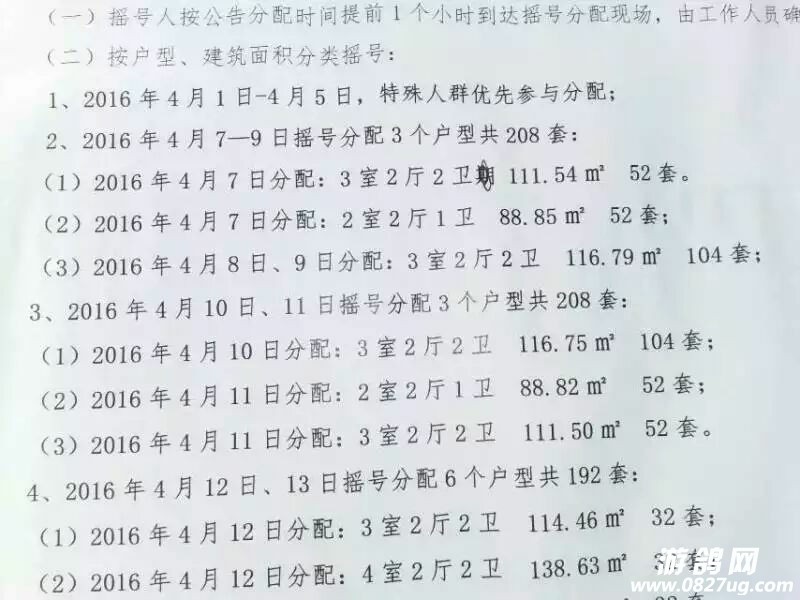 （一）摇号人按公告分配时间提前1个小时到达摇号分配现场，由工作人员确
（二）按户型、建筑面积分类摇号：
1、2016年4月1日-4月5日，特殊人群优先参与分配；
2、2016年4月7—9日摇号分配3个户型共208套：
（1）2016年4月7日分配：3室2厅2卫 111.54㎡ 52套。
（2）2016年4月7日分配：2室2厅1卫 88.85㎡ 52套；
（3）2016年4月8日、9日分配：3室2厅2卫 116.79㎡ 104套；
3、2016年4月10日、11日摇号分配3个户型共208套：
（1）2016年4月10日分配：3室2厅2卫 116.75㎡ 104套；
（2）2016年4月11日分配：2室2厅1卫 88.82㎡ 52套；
（3）2016年4月11日分配：3室2厅2卫 111.50㎡ 52套。
4、2016年4月12日、13日摇号分配6个户型共192套：
（1）2016年4月12日分配：3室2厅2卫 114.46㎡ 32套；
（2）2016年4月12日分配：4室2厅2卫 138.63㎡
游鸽网
www.0827ug.com